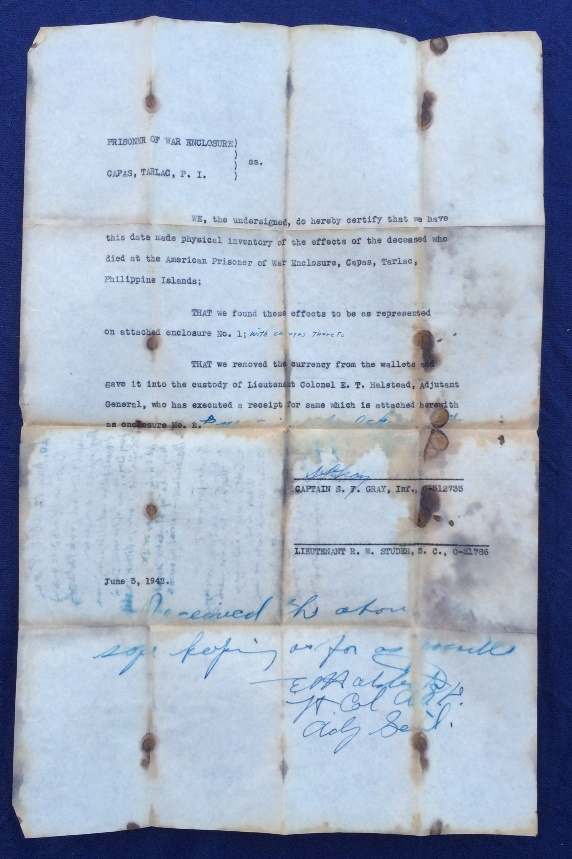 PRISONER OF WAR ENCLOSURE)
)
) ss.
CAPAS, TARLAC, P. I. )
WE, the undersigned, do hereby certify that we have
this date made physical inventory of the effects of the deceased who
died at the American Prisoner of War Enclosure, Capas, Tarlac,
Philippine Islands;
THAT we found these effects to be as represented
on attached enclosure No. 1; with changes thereto.
THAT we removed the currency from the wallets and
gave it into the custody of Lieutenant Colonel E. T. Halstead, Adjutant
General, who has executed a receipt for same which is attached herewith
as enclosure No. 2.
CAPTAIN S. F. GRAY, Inf.,
LIEUTENANT R. W. STUDER, S. C., O-21786
June 3, 1942.
Received the above
safe keeping as far as possible
E T Halstead
Lt Col A.G.
Adj Genl.